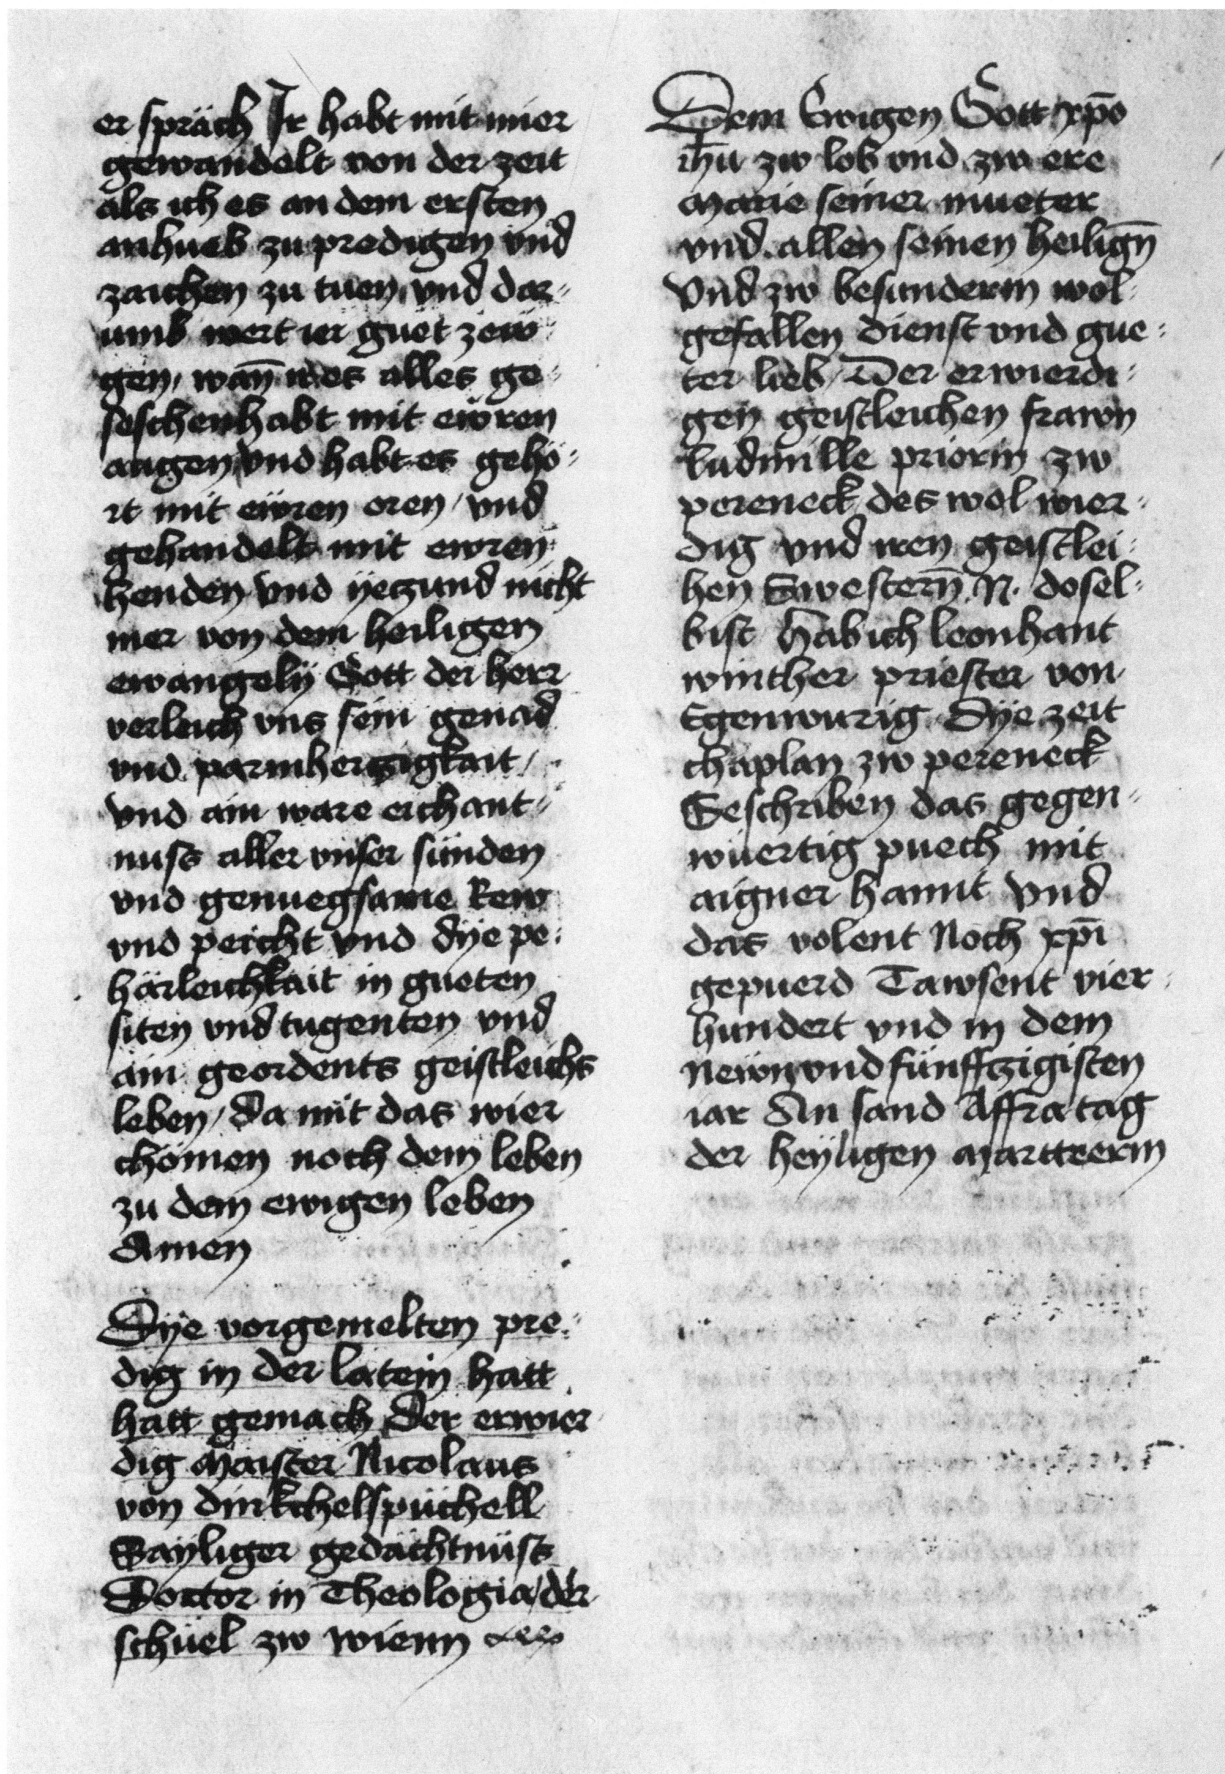 er spräch Ir habt mit mier
gewandelt von der zeit
als ich es an dem ersten
anhueb zu predigen vnd
zaichen zu tuen vnd dar-
umb wert ier guet zew-
gen, wan̄ ir es alles ge-
seschen habt mit ewren
augen, vnd habt es gehö-
rt mit ewren oren / vnd
gehandelt mit ewren
henden vnd yeczund nicht
mer von dem heiligen
ewangelÿ Gott der herr
verleich vns sein genad
vnd parmherczigkait /
vnd ain ware erchant-
nuss aller vnser sünden
vnd genuegsame Rew
vnd peicht vnd dÿe pe-
härleichkait in gueten
siten vnd tugenten vnd
ain geordents geistleichs
leben / da mit das wier
chömen noch dem leben
zu dem ewigen leben
Amen
Dÿe vorgemelten pre-
dig in der latein hatt
hatt gemach Der erwier
dig Maister Nicolaus
von dinkchelspüchell
Säyliger gedächtnüss
Doctor in Theologia / der
schüel zw wienn
Dem Ewigen Gott xp̄o
ih̄u zw lob vnd zw ere
Marie seiner mueter
vnd allen seinen heilign̄
Vnd zw besunderm wol-
gefallen dienst vnd gue-
ter lieb / Der erwierdi-
gen geistleichen frawn
ludmille priorin zw
pereneck des wol wier-
dig vnd iren geistlei-
hen Swestern̄ .N. dosel-
bist Hab ich leonhant
winther priester von
Egenwurig Dÿe zeit
chaplan zw pereneck
Geschriben das gegen-
wüertig puech mit
aigner hannt Vnd
das volent Noch xp̄i
gepuerd Tawsent vier-
hundert vnd in dem
Newnvndfünffczigisten
iar An sand Affra tag
der heÿligen Martrerin